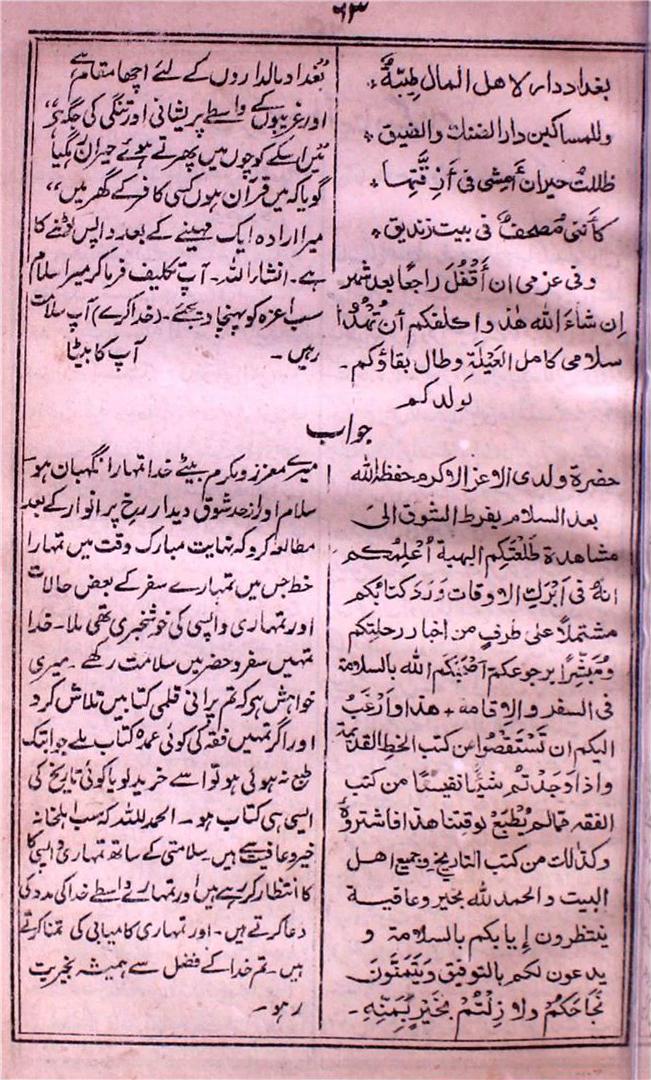 ٦٣
بغداد دار لاهل المال طيبةٌ ؞
وللمساكين دار الضنك والضيق ؞
ظللتُ حيران أمشى فى أزقّتها ؞
كأننى مُصحفٌ فى بيت زنديق ؞
وفى عزمى ان أقفُل راجعًا بعد شهر
إن شاءَ الله هذا واكلفكم أن تُهدُوا
سلامى كامل العَيْلَةِ وطال بقاؤكم ۔
ولدكم
بغداد مالداروں کے لئے اچھا مقام ہے
اور غریبوں کے واسطے پریشانی اور تنگی کی جگہ ہے
میں اسکے کوچوں میں پھرتے ہوئے حیران رہگیا
گویا کہ میں قرآن ہوں کسی کافر کے گھر میں“
میرا ارادہ ایک مہینے کے بعد واپس لوٹنے کا
ہے۔ انشاء اللہ۔ آپ تکلیف فرماکر میرا سلام
سب اعزہ کو پہنچا دیجئے۔ (خدا کرے) آپ سلامت
رہیں۔ آپ کا بیٹا
جواب
حضرة ولدى الاعز الاكرم حفظه الله
بعد السلام بفرط الشوق الىٰ
مشاهدة طلعتكم البهية أعلمكم
انهُ فى أبرك الاوقات وَرَدَ كتابكم
مشتملًا على طرفٍ من اخبار رحلتكم
ومُبَشِّرًا برجوعكم اصحبكم الله بالسلامة
فى السفر والاقامة ؞ هذا وأرْغَبُ
اليكم ان تستقصُوا عن كتب الخط القديمة
واذا وجَدْتُم شيئًا نفيسًا من كتب
الفقه ممالم يُطبَع لوقتنا هذا فاشتروهُ
وكذلك من كتب التاريخ وجميع اهل
البيت والحمد لله بخير وعافية
ينتظرون إيابكم بالسلامة و
يدعون لكم بالتوفيق ويَتَمَنَّونَ
نجاحَكُمْ ولا زِلْتُمْ بخَيْرٍ بِمَنِّهِ ۔
میرے معزز و مکرم بیٹے خدا تمہارا نگہبان ہو
سلام اور از حد شوق دیدار رخ پر انوار کے بعد
مطالعہ کرو کہ نہایت مبارک وقت میں تمہارا
خط جس میں تمہارے سفر کے بعض حالات
اور تمہاری واپسی کی خوشخبری تھی ملا۔ خدا
تمہیں سفر و حضر میں سلامت رکھے۔ میری
خواہش ہے کہ تم پرانی قلمی کتابیں تلاش کرو
اور اگر تمہیں فقہ کی کوئی عمدہ کتاب ملے جو ابتک
طبع نہ ہوئی ہو تو اسے خرید لو یا کوئی تاریخ کی
ایسی ہی کتاب ہو۔ الحمد للہ کہ سب اہلخانہ
خیر و عافیت سے ہیں۔ سلامتی کے ساتھ تمہاری واپسی
کا انتظار کر رہے ہیں اور تمہارے واسطے خدا کی مدد کی
دعا کرتے ہیں۔ اور تمہاری کامیابی کی تمنا کرتے
ہیں۔ تم خدا کے فضل سے ہمیشہ بخیریت
رہو۔